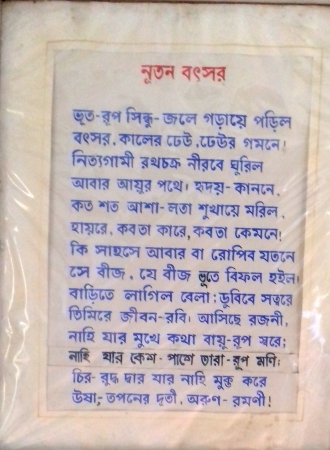 নূতন বৎসর
ভূত-রূপ সিন্ধু-জলে গড়ায়ে পড়িল
বৎসর, কালের ঢেউ, ঢেউর গমনে।
নিত্যগামী রথচক্র নীরবে ঘুরিল
আবার আয়ুর পথে। হৃদয়-কাননে,
কত শত আশা-লতা শুখায়ে মরিল,
হায়রে, কবতা কারে, কবতা কেমনে!
কি সাহসে আবার বা রোপিব যতনে
সে বীজ, যে বীজ ভূতে বিফল হইল!
বাড়িতে লাগিল বেলা; ডুবিবে সত্বরে
তিমিরে জীবন-রবি। আসিছে রজনী,
নাহি যার মুখে কথা বায়ু-রূপ স্বরে;
নাহি যার কেশ-পাশে তারা-রূপ মণি;
চির-রুদ্ধ দ্বার যার নাহি মুক্ত করে
ঊষা,- তপনের দূতী, অরুণ-রমণী!